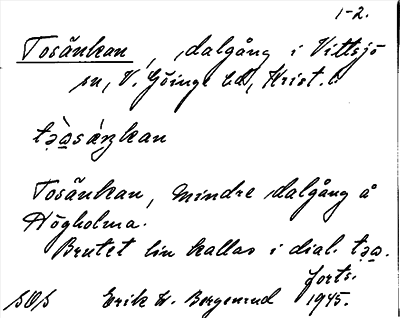 1-2.
Tosänkan, dalgång i Vittsjö
sn, V. Göinge hd, Krist. l.
Tosänkan, mindre dalgång å
Högholma.
Brutet lin kallas i dial.
forts.
SOS Erik W. Bergenrud 1945.